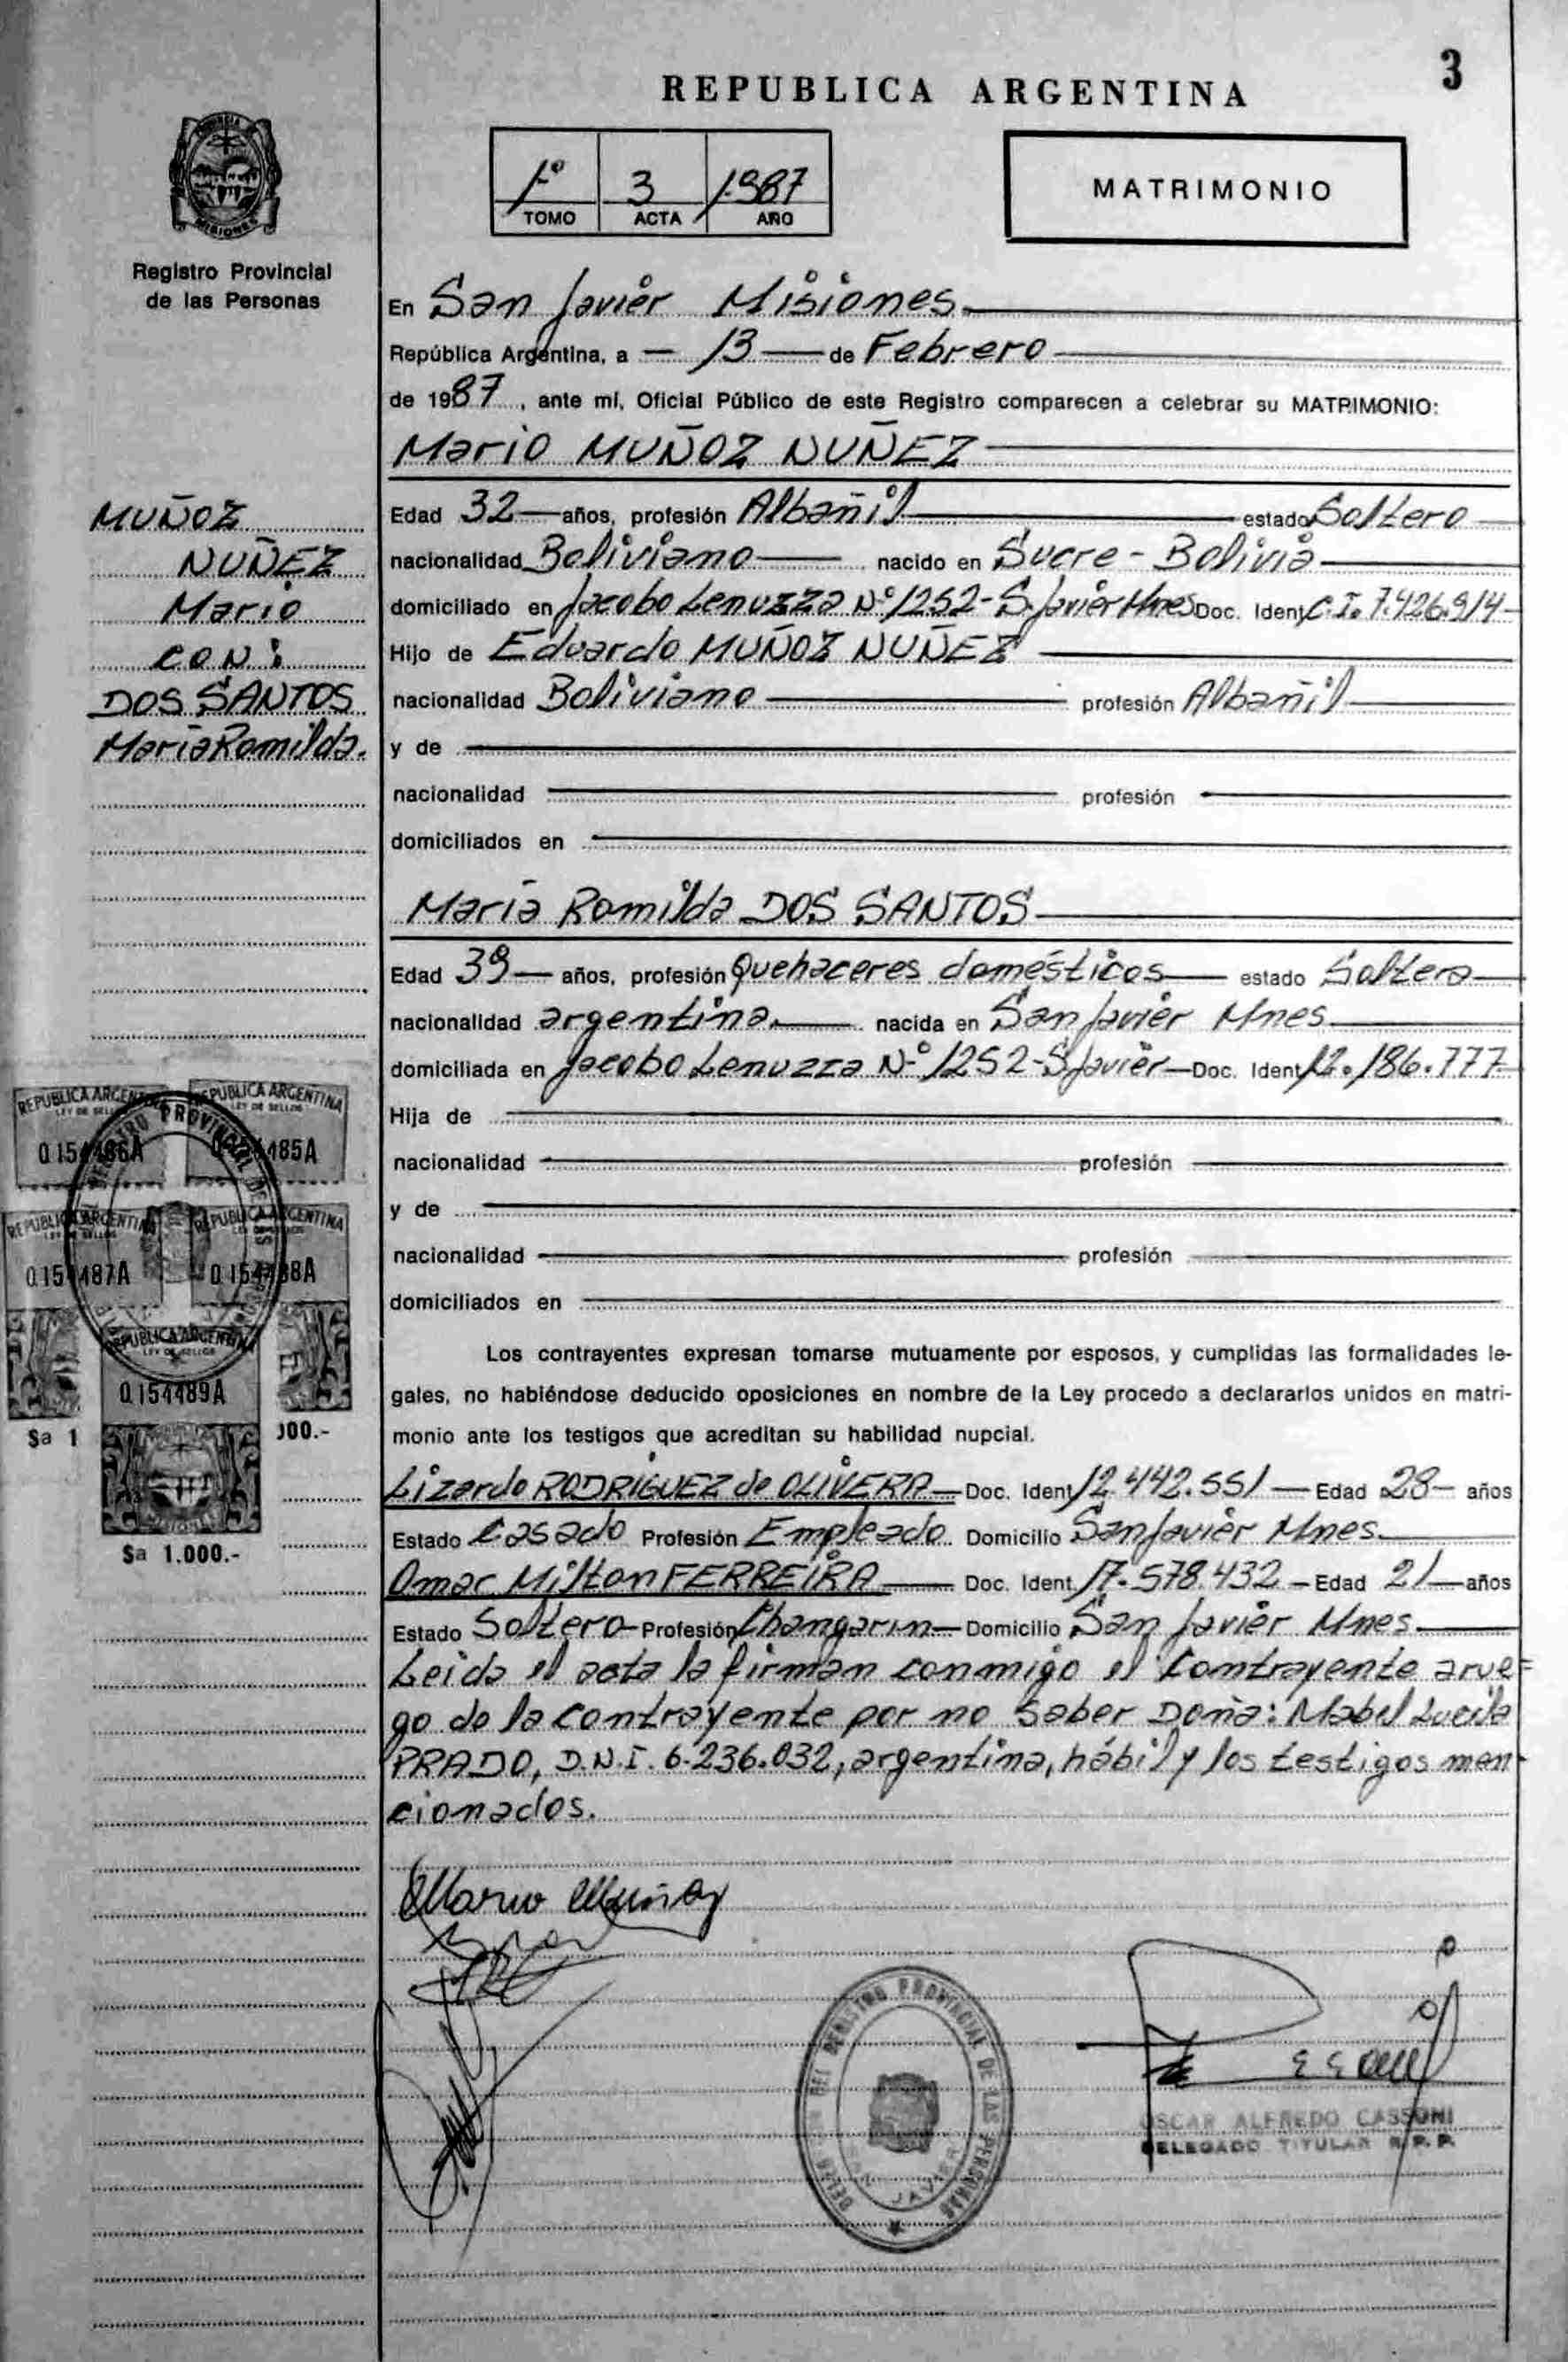 3
REPUBLICA ARGENTINA
1º 3 1987
TOMO ACTA AÑO
MATRIMONIO
MISIONES
Registro Provincial
de las Personas
En San Javier Misiones.
República Argentina, a 13 de Febrero
de 1987, ante mí, Oficial Público de este Registro comparecen a celebrar su MATRIMONIO:
Mario MUÑOZ NUÑEZ
MUÑOZ
NUÑEZ
Mario
CON:
DOS SANTOS
María Romilda.
Edad 32 años, profesión Albañil estado Soltero
nacionalidad Boliviano nacido en Sucre - Bolivia
domiciliado en Jacobo Lenuzza Nº 1252 - S. Javier Mnes Doc. Ident. C.I. 7.426.914
Hijo de Eduardo MUÑOZ NUÑEZ
nacionalidad Boliviano profesión Albañil
y de
nacionalidad profesión
domiciliados en
María Romilda DOS SANTOS
Edad 39 años, profesión Quehaceres domésticos estado Soltera
nacionalidad argentina. nacida en San Javier Mnes
domiciliada en Jacobo Lenuzza Nº 1252 - S. Javier Doc. Ident. 12.186.777
Hija de
nacionalidad profesión
y de
nacionalidad profesión
domiciliados en
Los contrayentes expresan tomarse mutuamente por esposos, y cumplidas las formalidades le-
gales, no habiéndose deducido oposiciones en nombre de la Ley procedo a declararlos unidos en matri-
monio ante los testigos que acreditan su habilidad nupcial.
Lizardo RODRIGUEZ de OLIVERA Doc. Ident. 12.442.551 Edad 28 años
Estado Casado Profesión Empleado Domicilio San Javier Mnes.
Omar Milton FERREIRA Doc. Ident. 17.578.432 Edad 21 años
Estado Soltero Profesión Changarin Domicilio San Javier Mnes.
Leida el acta la firman conmigo el contrayente a rue=
go de la contrayente por no saber Doña: Mabel Lucila
PRADO, D.N.I. 6.236.032, argentina, hábil y los testigos men-
cionados.
REPUBLICA ARGENTINA REPUBLICA ARGENTINA
LEY DE SELLOS LEY DE SELLOS
0.154486A 0.154485A
REPUBLICA ARGENTINA REPUBLICA ARGENTINA
0.154487A 0.154488A
REPUBLICA ARGENTINA
LEY DE SELLOS
0.154489A
$a 1 000.-
$a 1.000.-
Mario Muñoz
DELEGACION DEL REGISTRO PROVINCIAL DE LAS PERSONAS
SAN JAVIER
OSCAR ALFREDO CASSONI
DELEGADO TITULAR R.P.P.